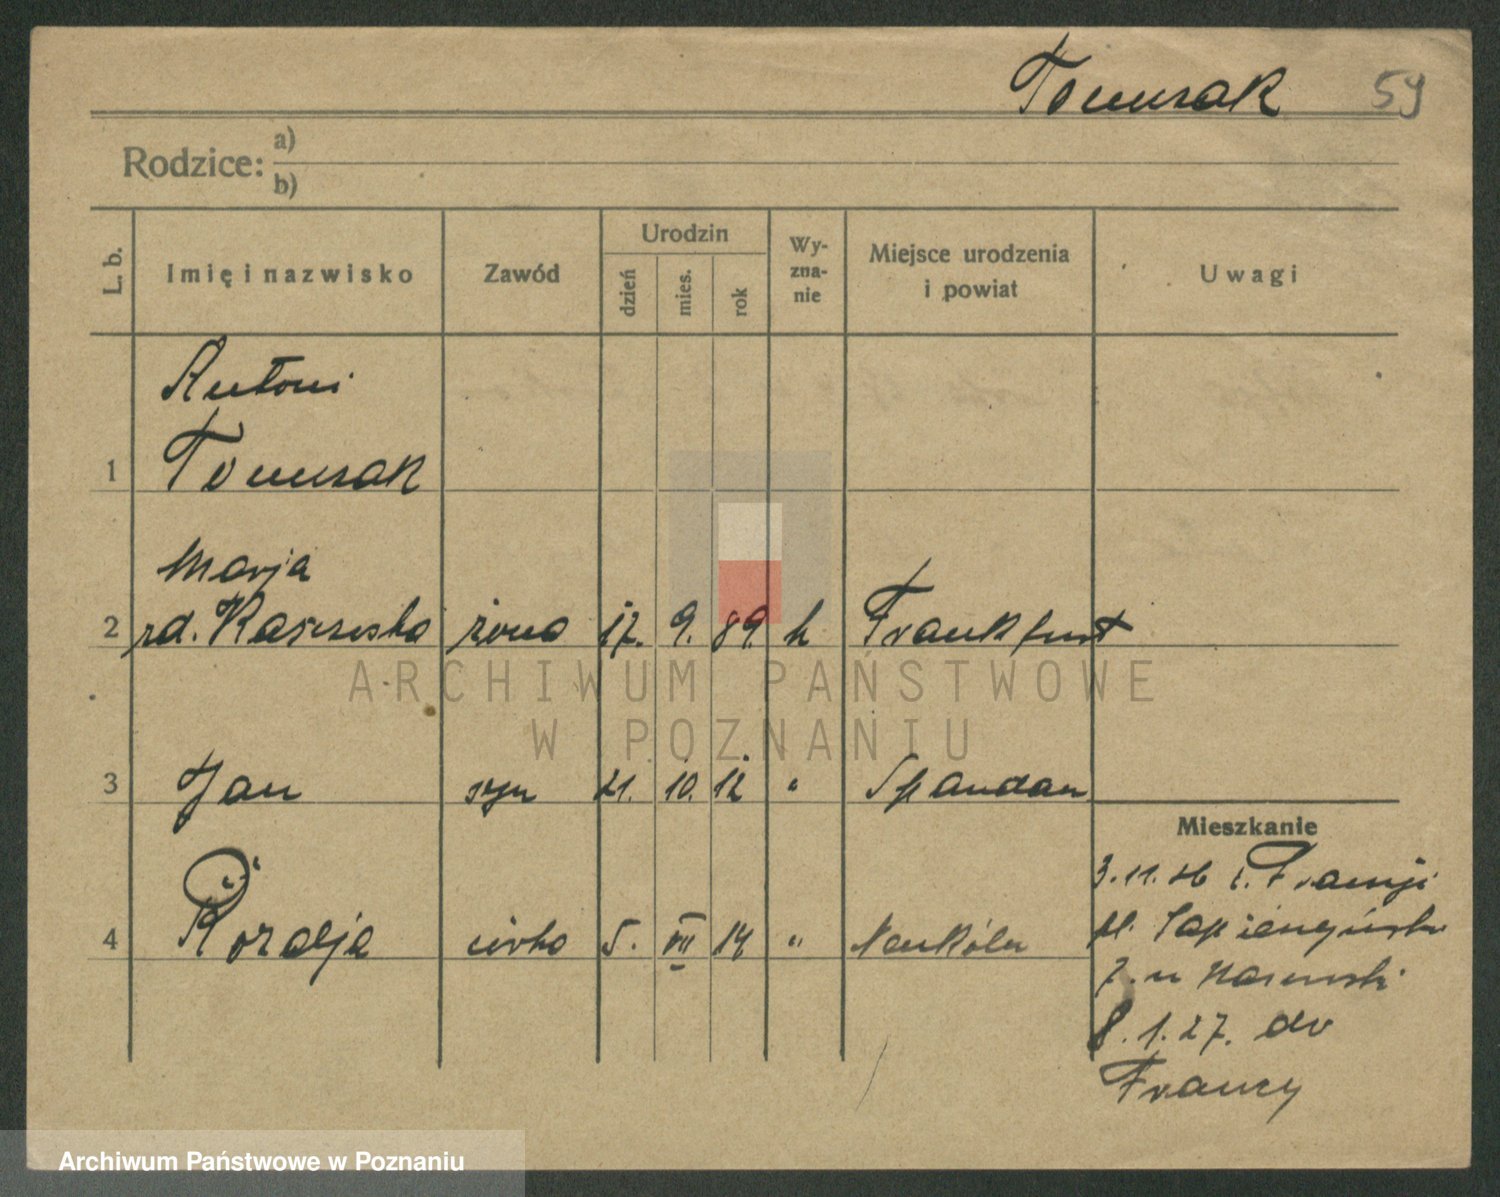 Tomczak 59
Rodzice: a)
b)
L. b.
Imię i nazwisko
Zawód
Urodzin
dzień
mies.
rok
Wy-
zna-
nie
Miejsce urodzenia
i powiat
Uwagi
Antoni
1 Tomczak
Marja
2 żona 17. 9. 89. k Frankfurt
3 Jan syn 21. 10. 12 " Spandau
4 Rozalja córka 5. VII 14 " Neukóln
Mieszkanie
3.11.26 z Francji
pl. Sapieżyński
7.
8.1.27. do
Francy
ARCHIWUM PAŃSTWOWE
W POZNANIU
Archiwum Państwowe w Poznaniu